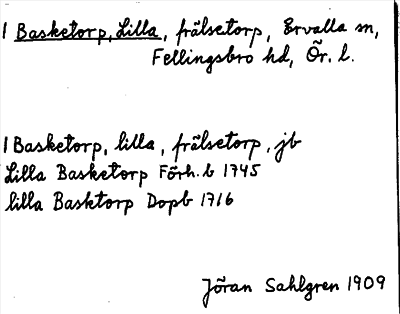 1 Basketorp, Lilla, frälsetorp, Ervalla sn,
Fellingsbro hd, Ör. l.
1 Basketorp, lilla, frälsetorp, jb
Lilla Basketorp Förh.b 1745
lilla Basktorp Dopb 1716
Jöran Sahlgren 1909